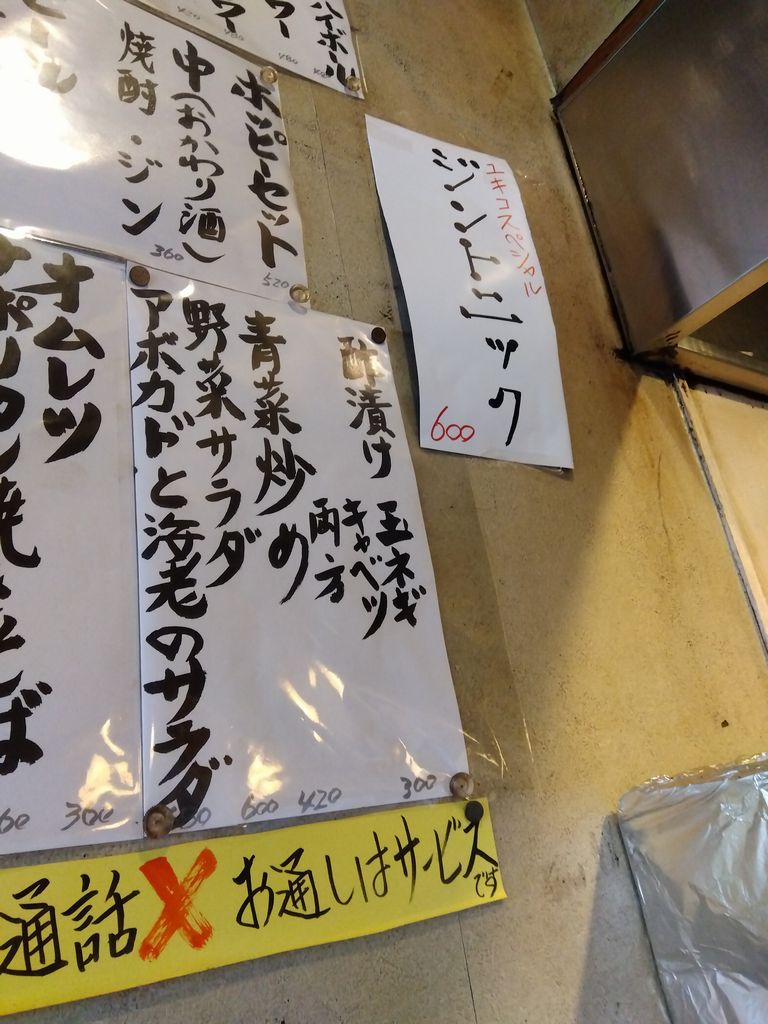 ハイボール
ホッピーセット
520
中(おかわり酒)
焼酎・ジン
360
ユキコスペシャル
ジントニック
600
酢漬け 玉ネギ
キャベツ
両方
300
青菜炒め
420
野菜サラダ
600
アボカドと海老のサラダ
オムレツ
300
通話X お通しはサービスです